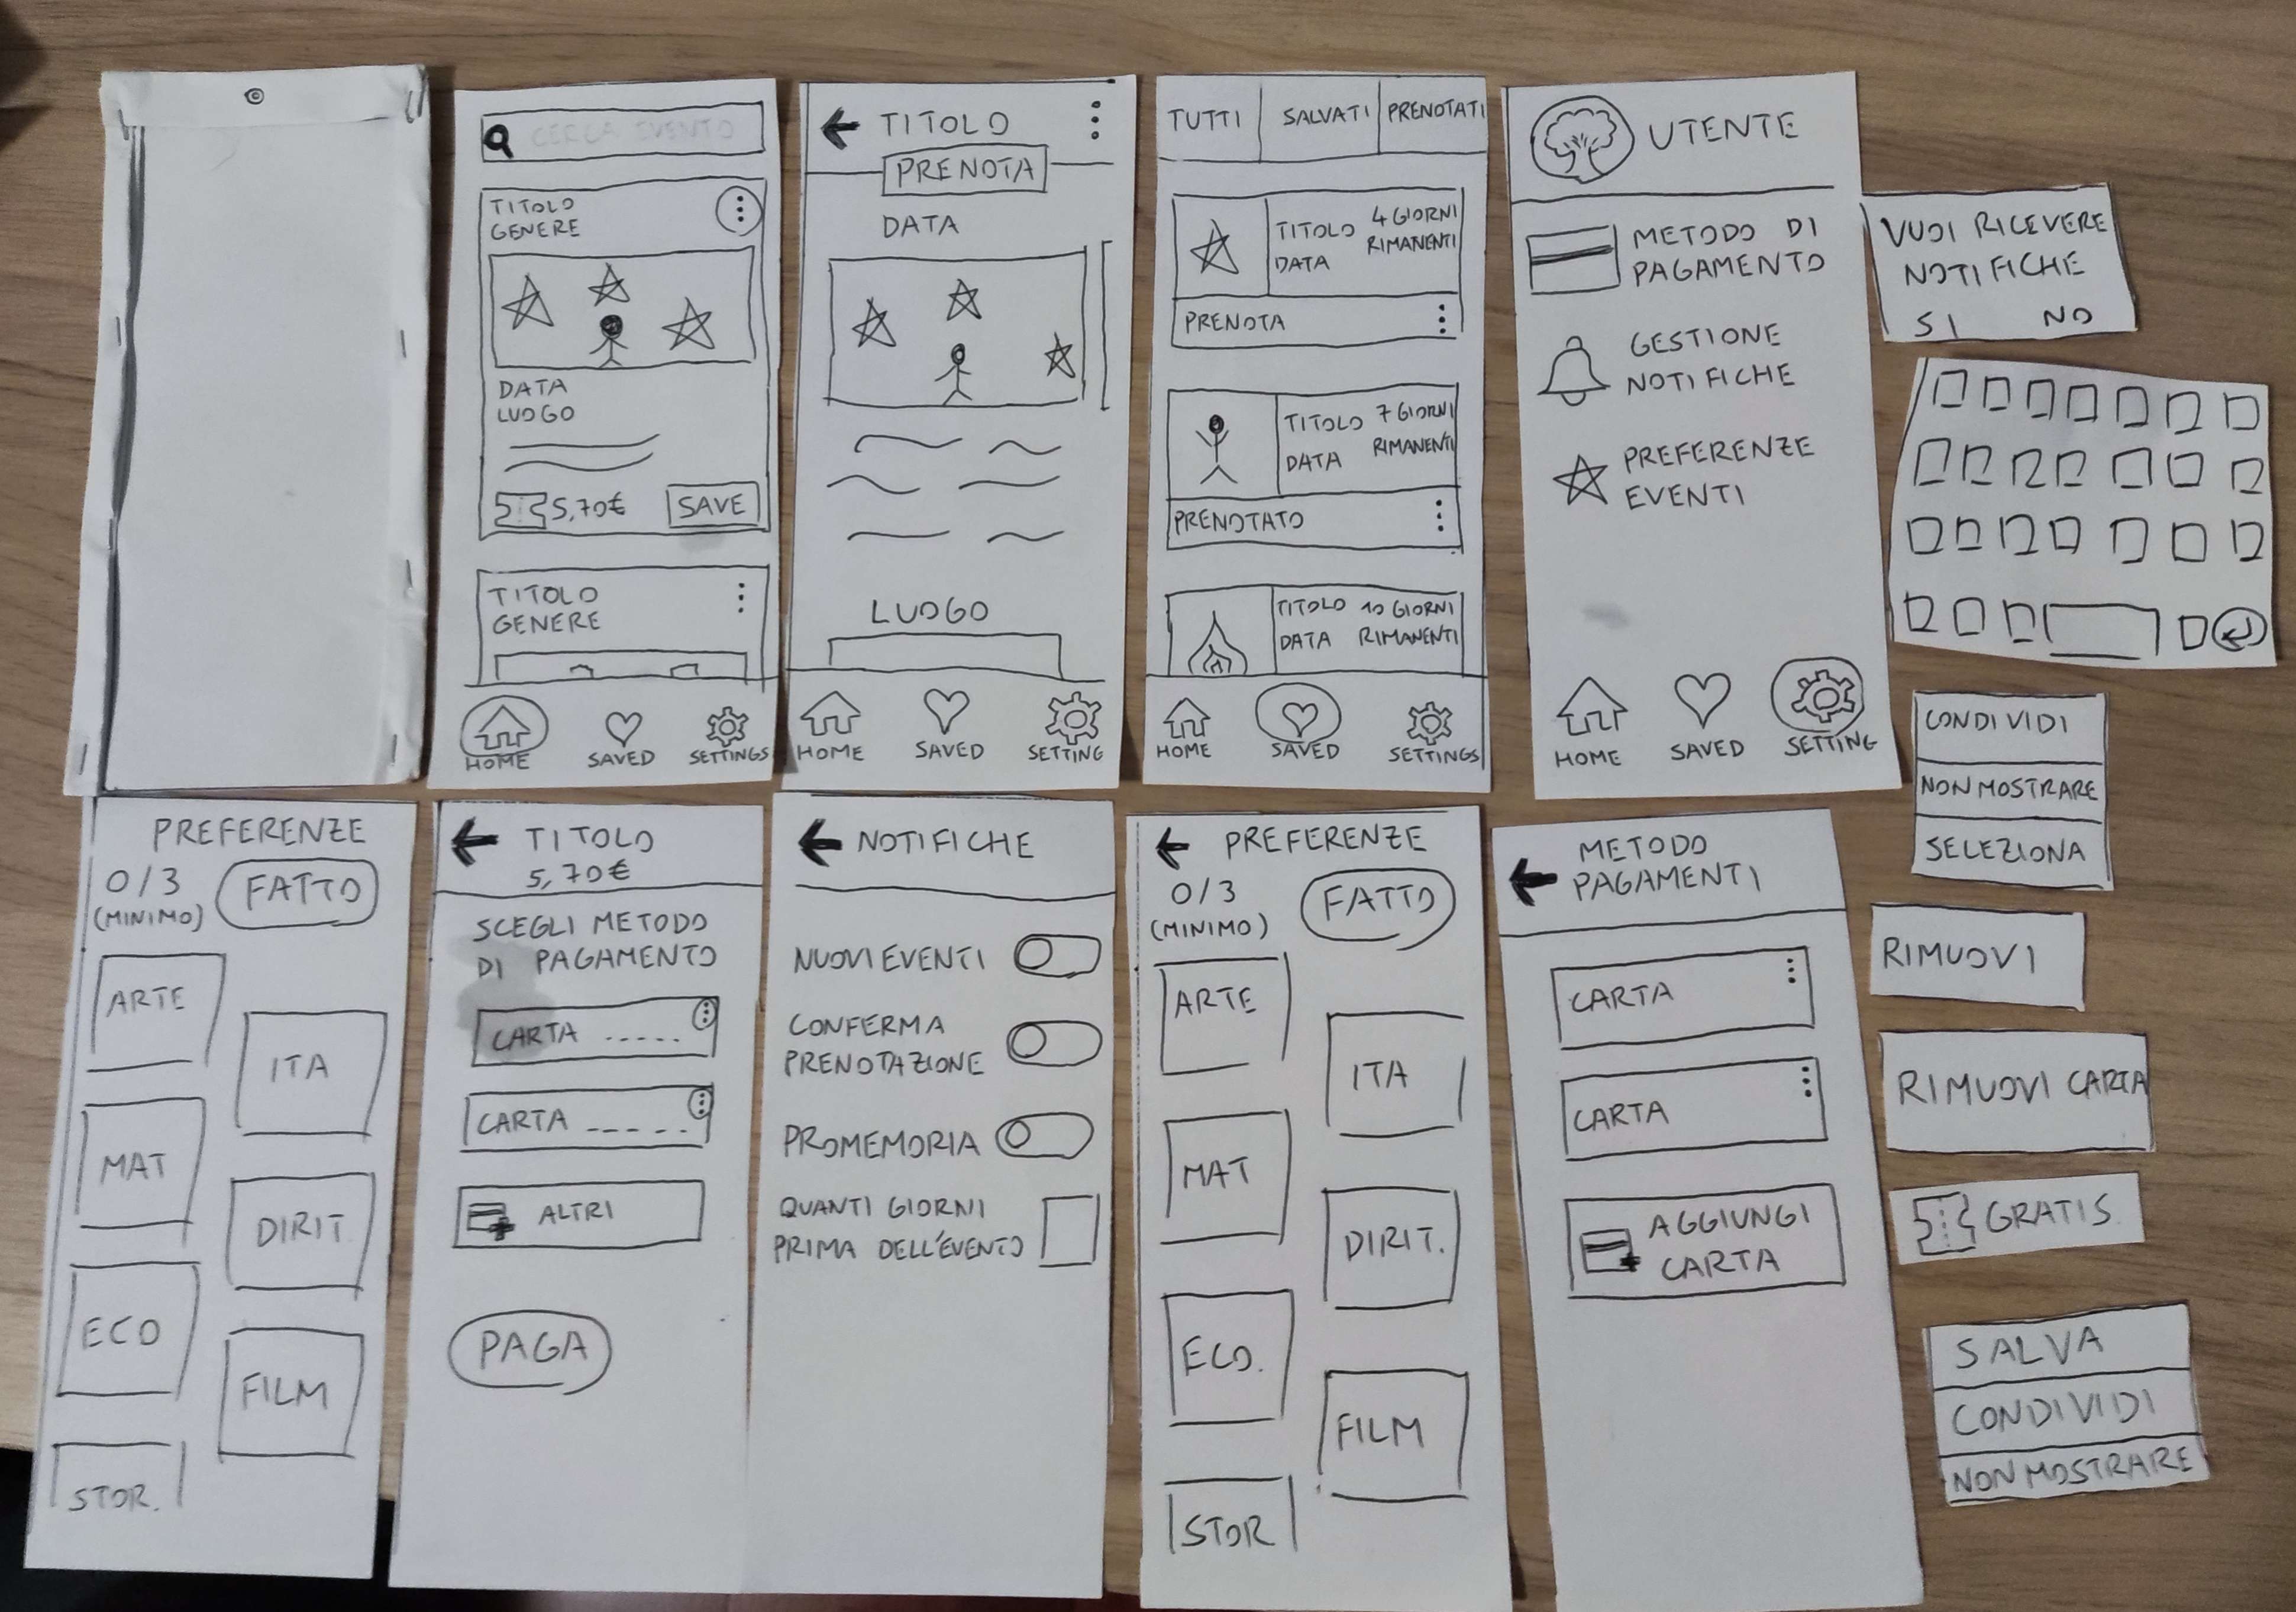 CERCA EVENTO
TITOLO
GENERE
DATA
LUOGO
5,70€
SAVE
TITOLO
GENERE
HOME
SAVED
SETTINGS
TITOLO
PRENOTA
DATA
LUOGO
HOME
SAVED
SETTING
TUTTI
SALVATI
PRENOTATI
TITOLO 4 GIORNI
DATA RIMANENTI
PRENOTA
TITOLO 7 GIORNI
DATA RIMANENTI
PRENOTATO
TITOLO 10 GIORNI
DATA RIMANENTI
HOME
SAVED
SETTINGS
UTENTE
METODO DI
PAGAMENTO
GESTIONE
NOTIFICHE
PREFERENZE
EVENTI
HOME
SAVED
SETTING
VUOI RICEVERE
NOTIFICHE
SI NO
CONDIVIDI
NON MOSTRARE
SELEZIONA
RIMUOVI
RIMUOVI CARTA
GRATIS
SALVA
CONDIVIDI
NON MOSTRARE
PREFERENZE
0/3
(MINIMO)
FATTO
ARTE
ITA
MAT
DIRIT.
ECO
FILM
STOR.
TITOLO
5,70€
SCEGLI METODO
DI PAGAMENTO
CARTA -----
CARTA -----
ALTRI
PAGA
NOTIFICHE
NUOVI EVENTI
CONFERMA
PRENOTAZIONE
PROMEMORIA
QUANTI GIORNI
PRIMA DELL'EVENTO
PREFERENZE
0/3
(MINIMO)
FATTO
ARTE
ITA
MAT
DIRIT.
ECO.
FILM
STOR
METODO
PAGAMENTI
CARTA
CARTA
AGGIUNGI
CARTA